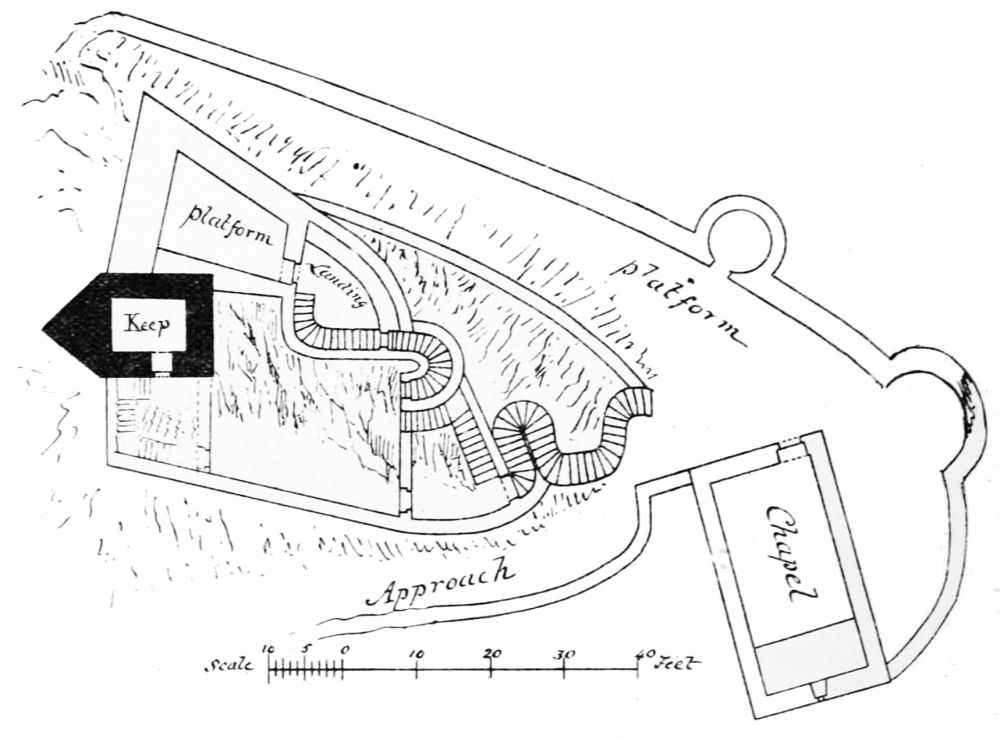 platform
Landing
Keep
platform
Chapel
Approach
Scale 10 5 0 10 20 30 40 Feet